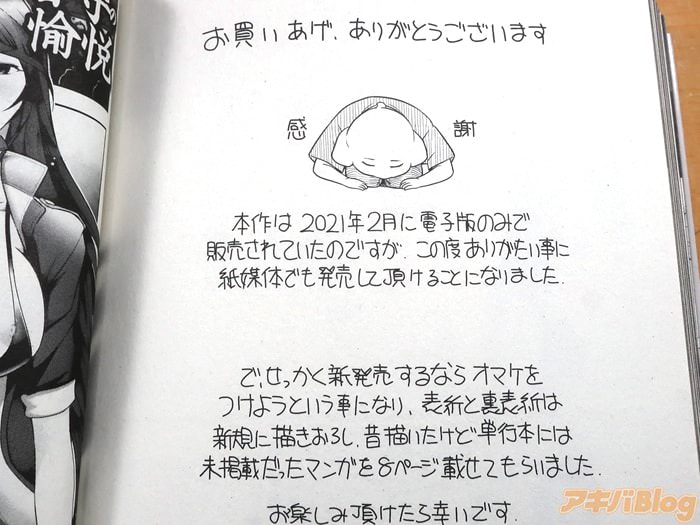 お買いあげ、ありがとうございます
感謝
本作は2021年2月に電子版のみで
販売されていたのですが、この度ありがたい事に
紙媒体でも発売して頂けることになりました.
で、せっかく新発売するならオマケを
つけようという事になり、表紙と裏表紙は
新規に描きおろし、昔描いたけど単行本には
未掲載だったマンガを8ページ載せてもらいました.
お楽しみ頂けたら幸いです.
の
愉悦
アキバBlog